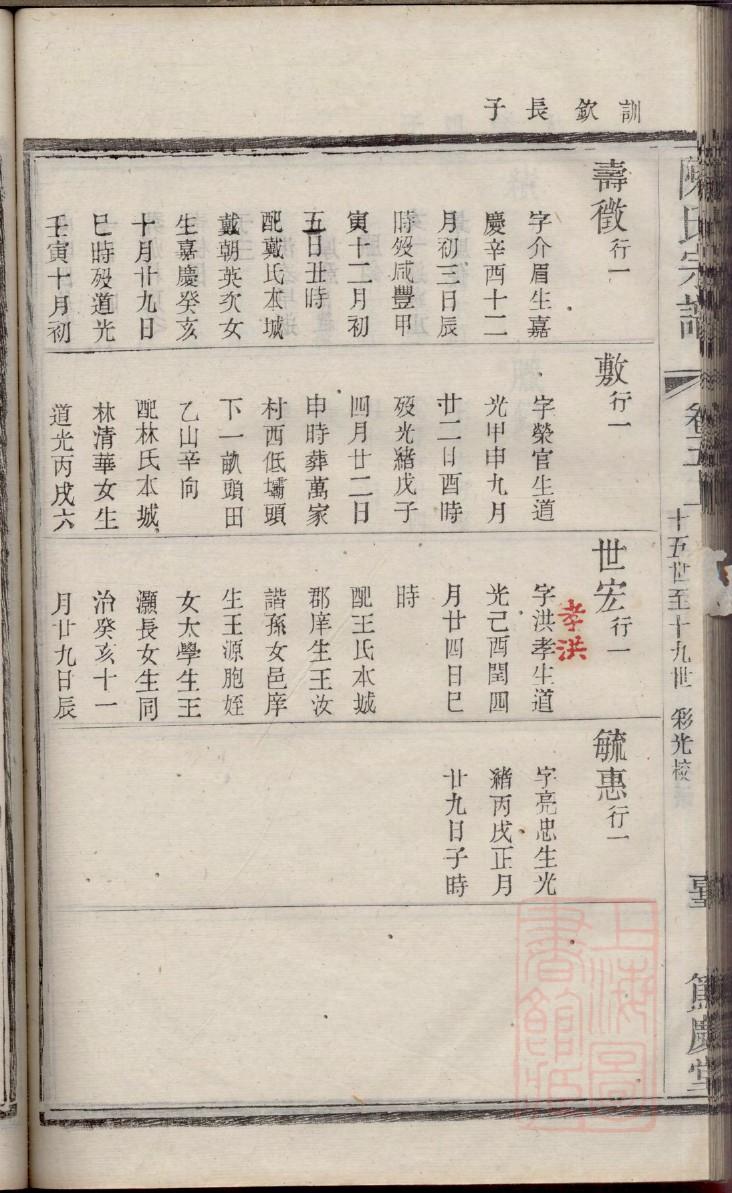 訓欽長子
陳氏宗譜
卷五
十五世至十九世
彩光校
篤慶堂
壽徵行一
字介眉生嘉
慶辛酉十二
月初三日辰
時歿咸豐甲
寅十二月初
五日丑時
配戴氏本城
戴朝英次女
生嘉慶癸亥
十月廿九日
巳時歿道光
壬寅十月初
敷行一
字榮官生道
光甲申九月
廿二日酉時
歿光緒戊子
四月廿二日
申時葬萬家
村西低壩頭
下一畝頭田
乙山辛向
配林氏本城
林清華女生
道光丙戌六
世宏行一
孝洪
字洪孝生道
光己酉閏四
月廿四日巳
時
配王氏本城
郡庠生王汝
諧孫女邑庠
生王源胞姪
女太學生王
灝長女生同
治癸亥十一
月廿九日辰
毓惠行一
字亮忠生光
緒丙戌正月
廿九日子時
上海圖
書館藏